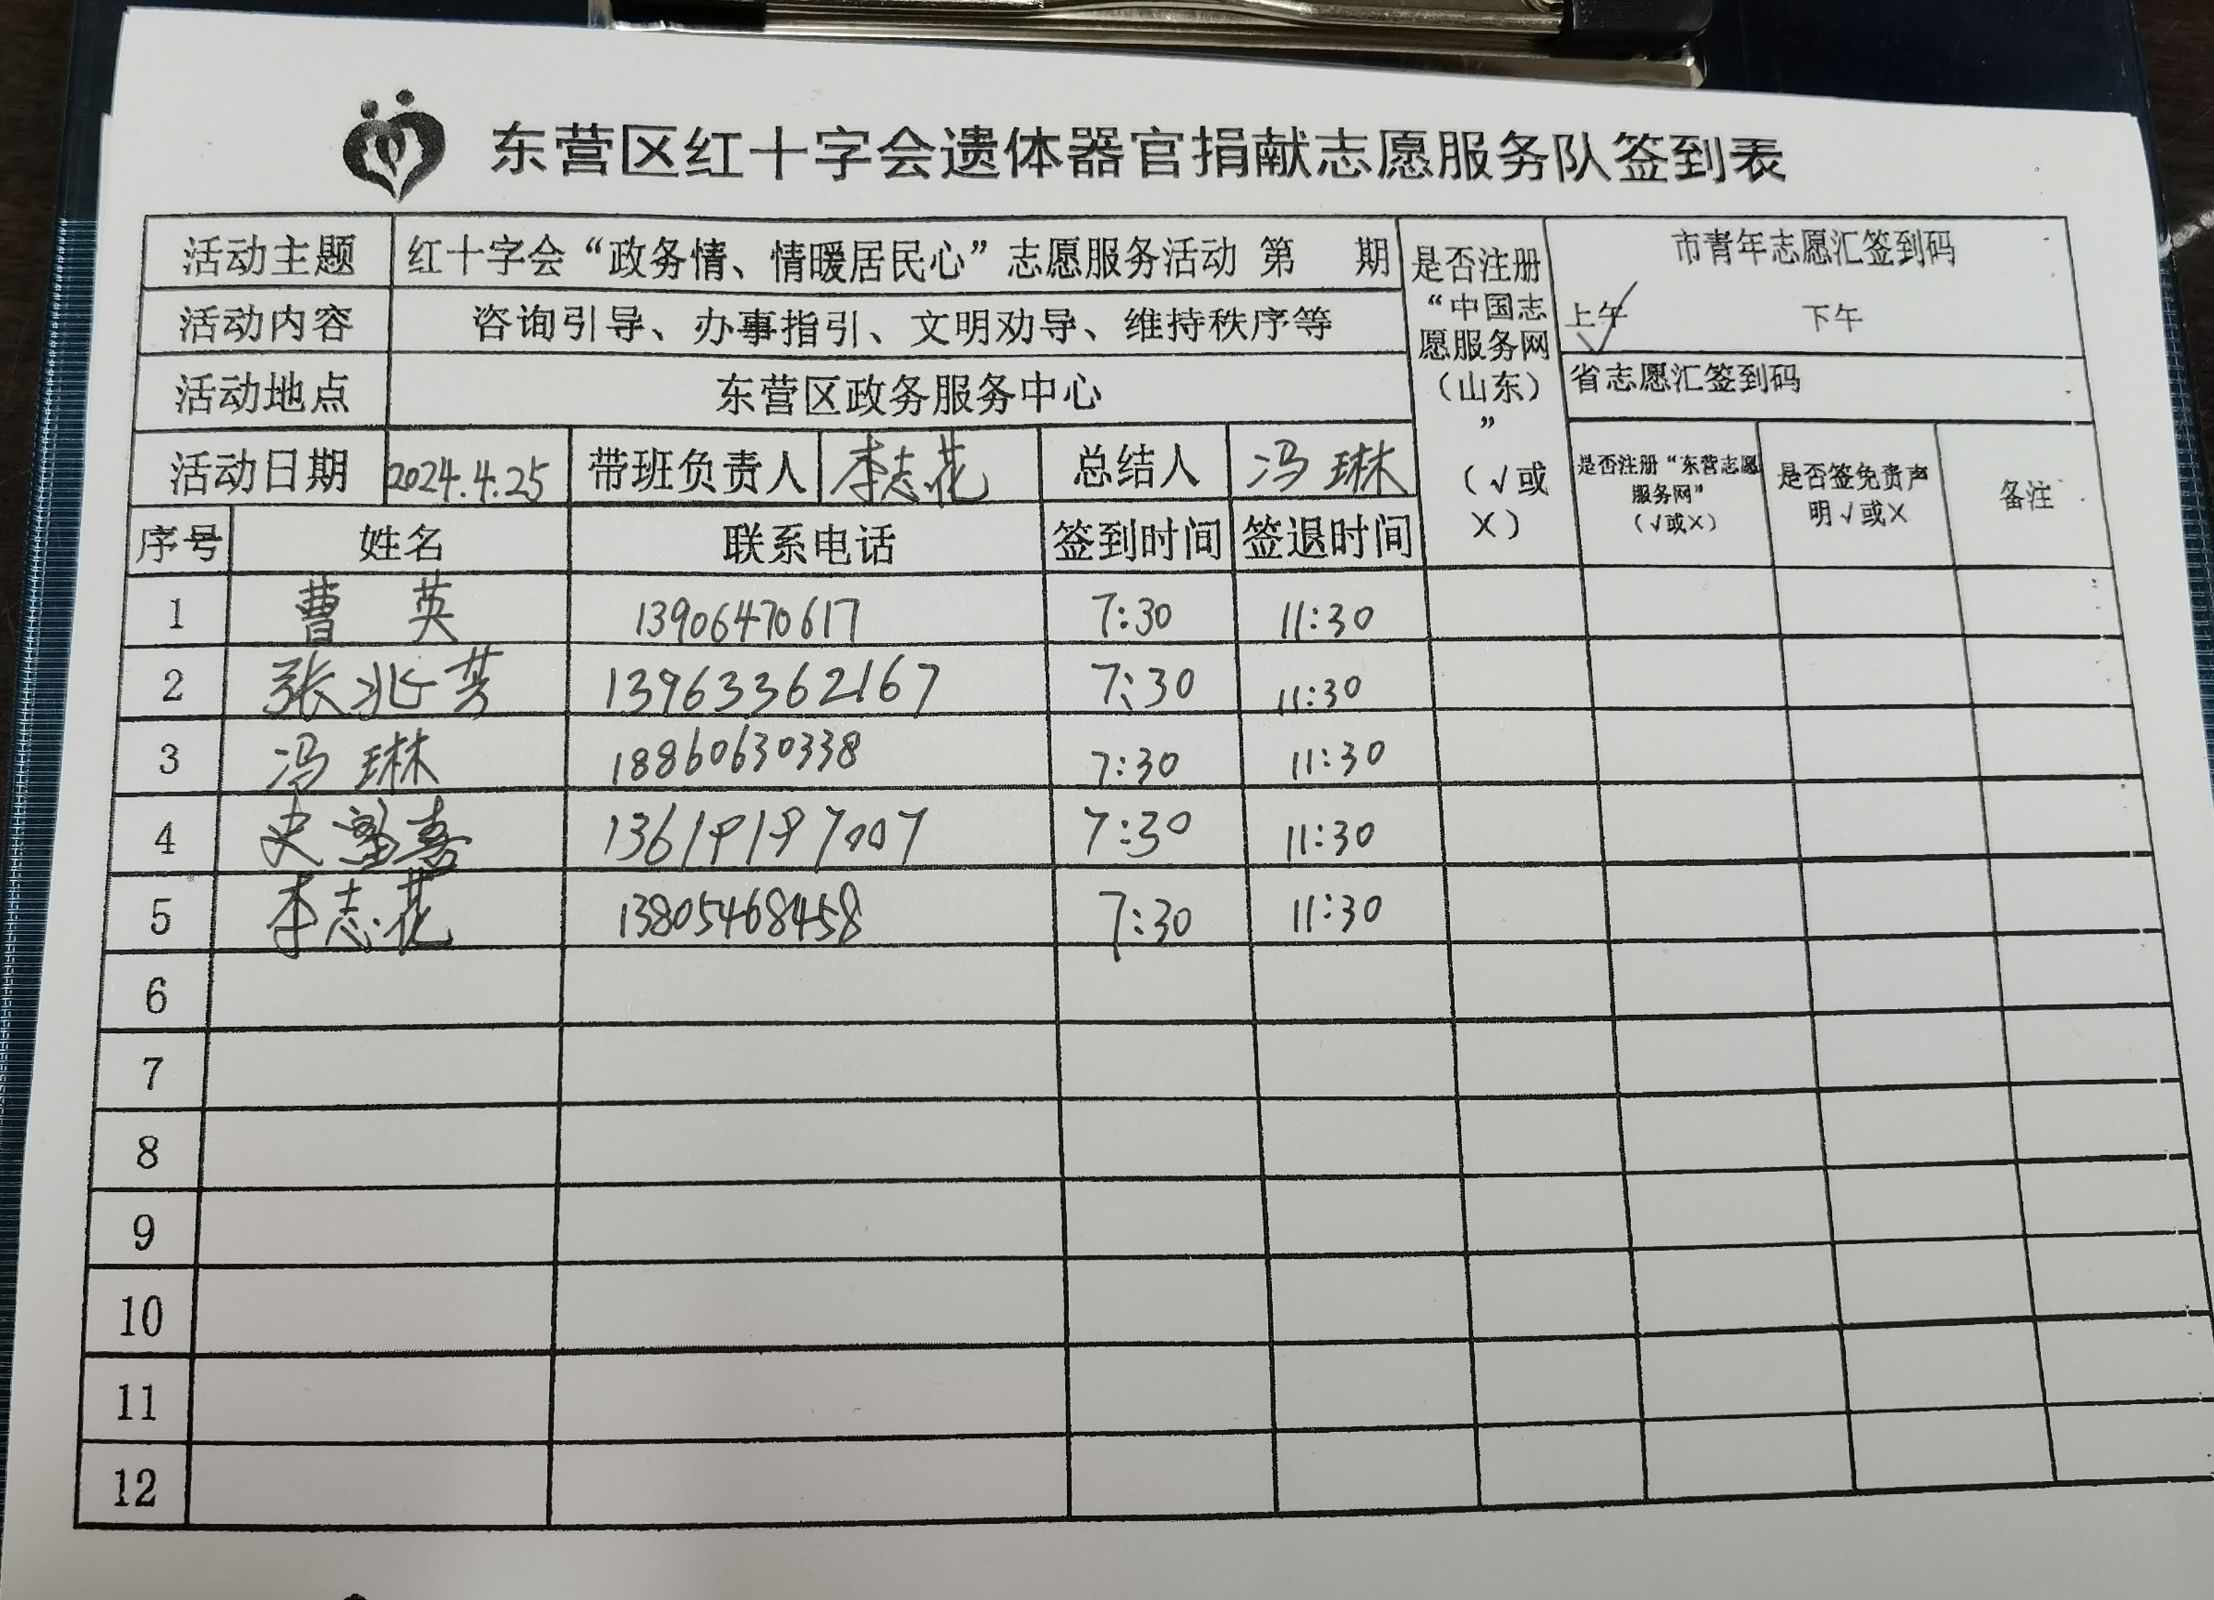 东营区红十字会遗体器官捐献志愿服务队签到表
活动主题 红十字会“政务情、情暖居民心”志愿服务活动 第 期
是否注册“中国志愿服务网（山东）”（√或X）
市青年志愿汇签到码
上午 √ 下午
活动内容 咨询引导、办事指引、文明劝导、维持秩序等
省志愿汇签到码
活动地点 东营区政务服务中心
活动日期 2024.4.25 带班负责人 李志花 总结人 冯琳
是否注册“东营志愿服务网”（√或X）
是否签免责声明√或X
备注
序号 姓名 联系电话 签到时间 签退时间
1 曹英 13906470617 7:30 11:30
2 张兆芸 13963362167 7:30 11:30
3 冯琳 18860630338 7:30 11:30
4 史 喜 13619197007 7:30 11:30
5 李志花 13805468458 7:30 11:30
6
7
8
9
10
11
12